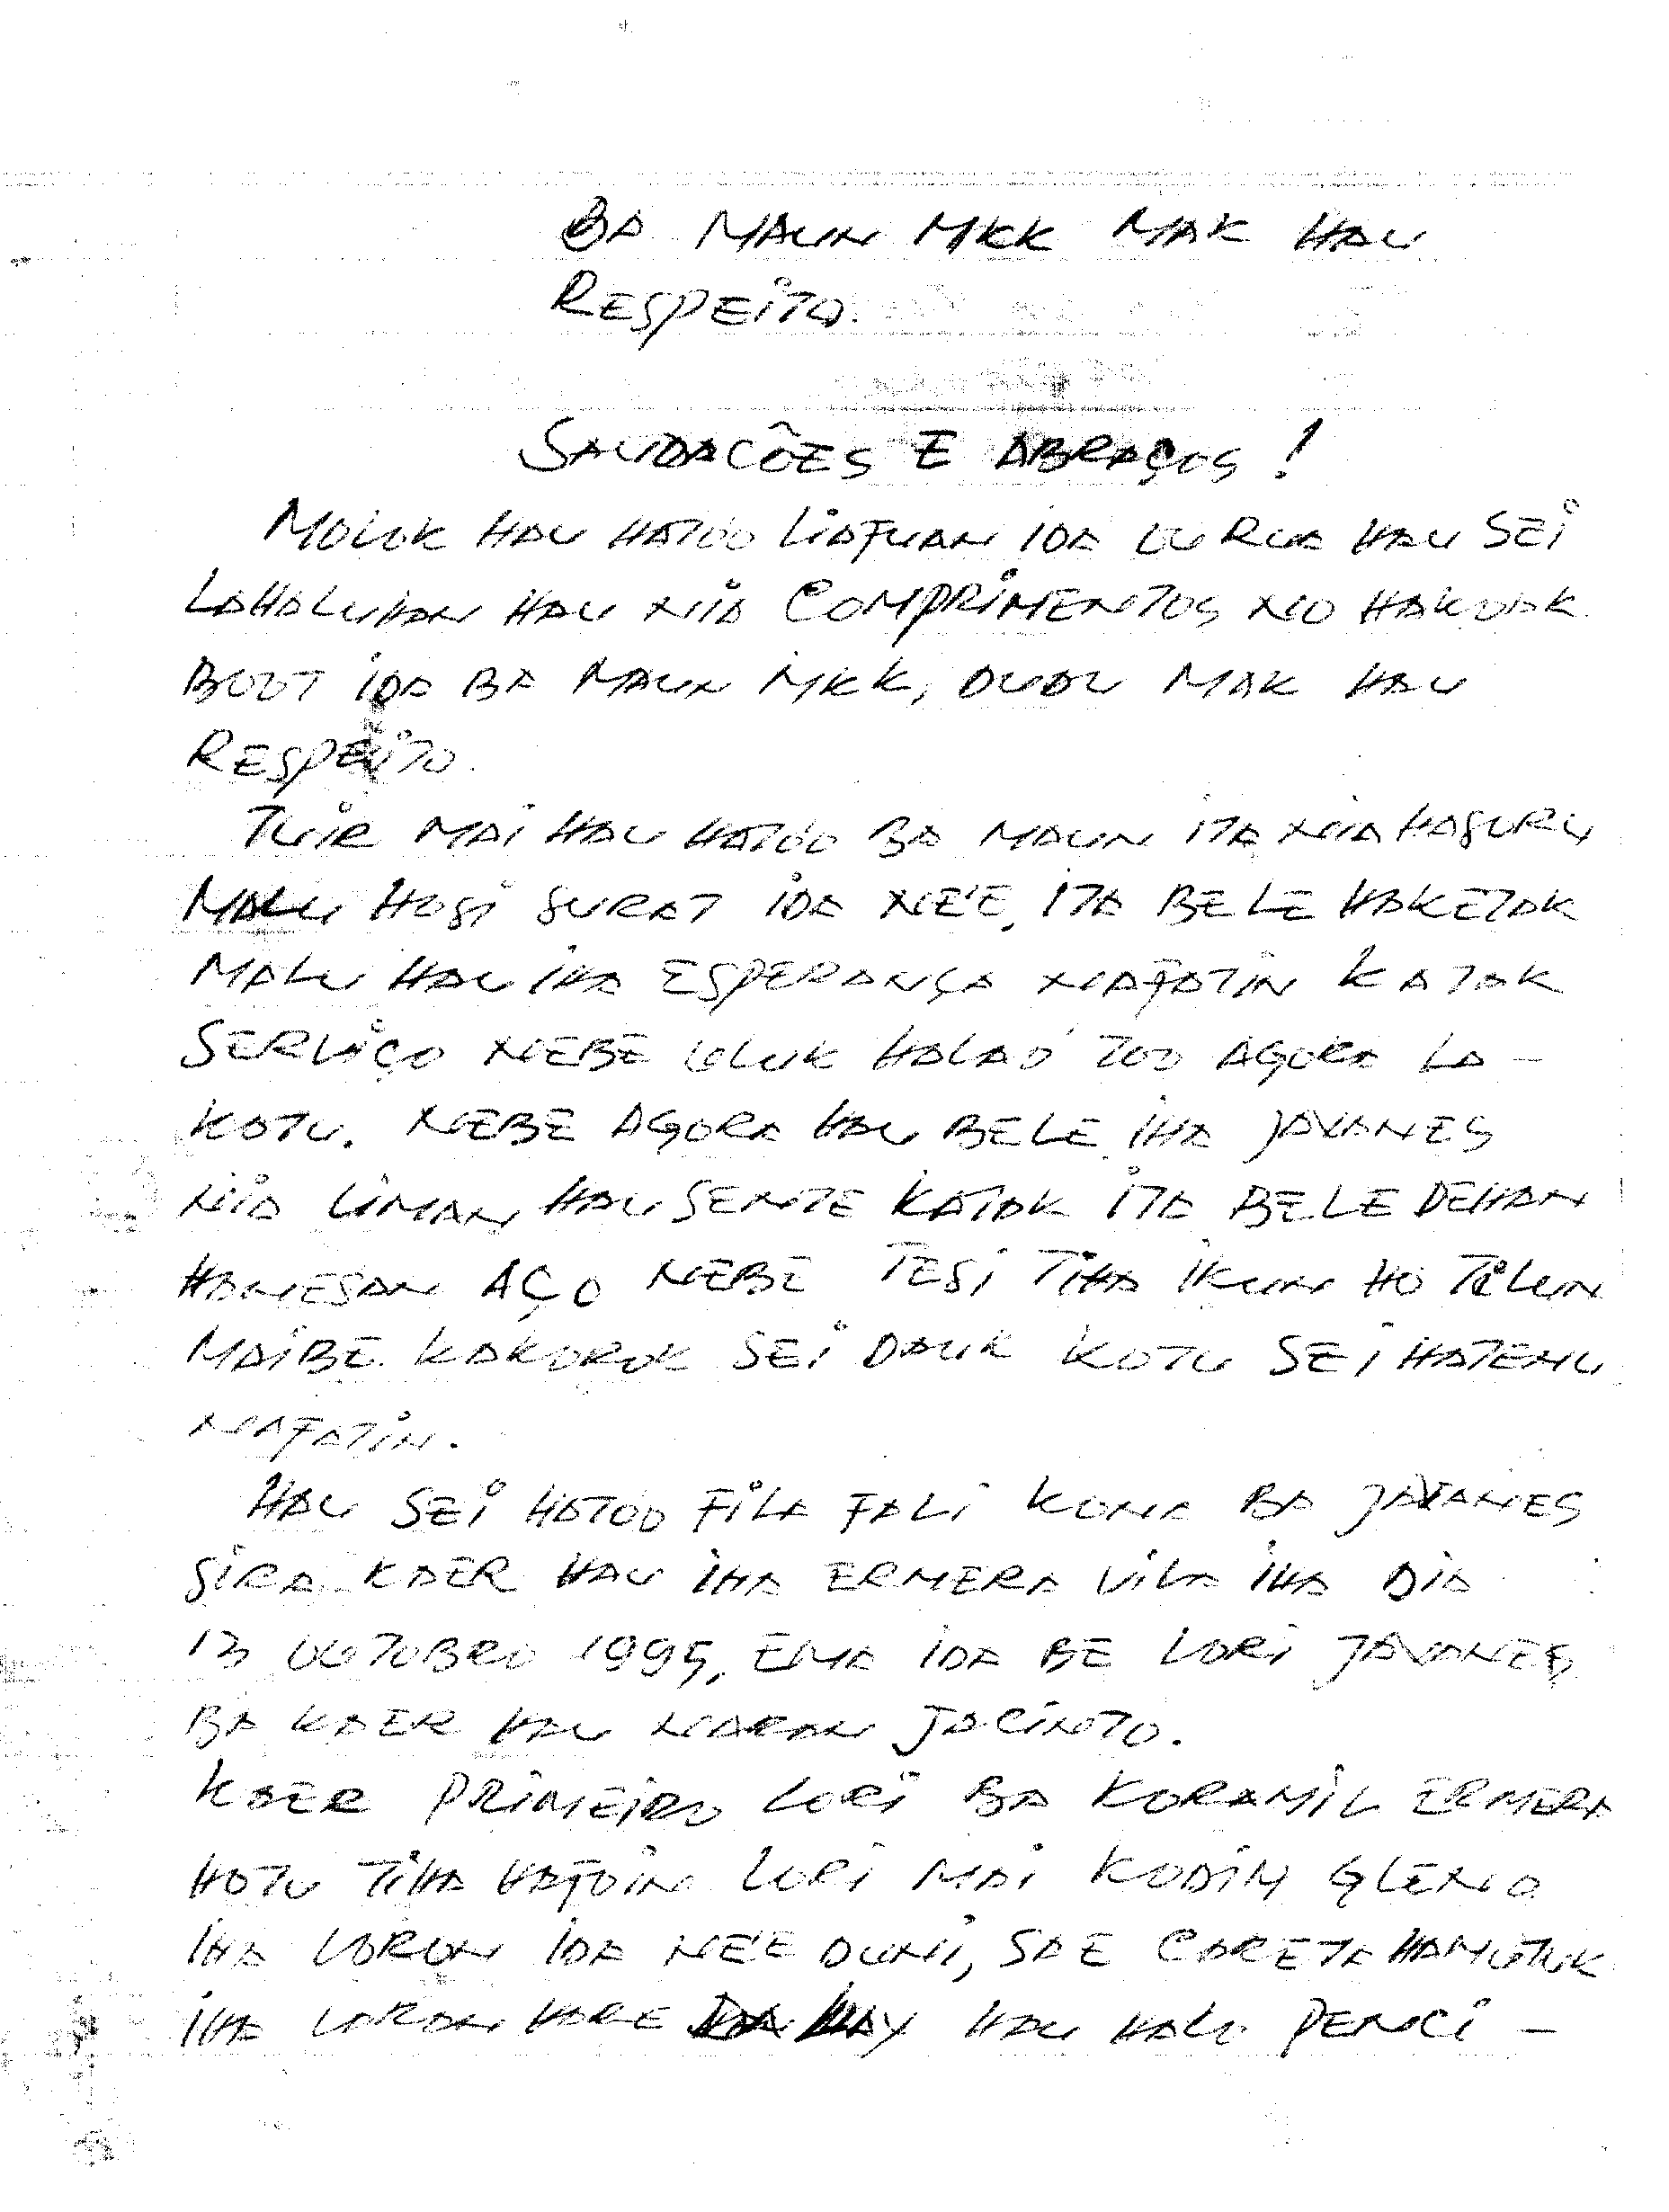 BA MAUN MKK MAK HAU
RESPEITO.
SAUDACÕES E ABRAÇOS!
MOLOK HAU HATOO LIAFUAN IDA OU RUA HAU SEI
LAHALUHAN HAU NIA COMPRIMENTOS NO HAKOAK
BOOT IDA BA MAUN MKK, DUDU MAK HAU
RESPEITO.
TUIR MAI HAU HATOO BA MAUN ITA NIA HASORU
MALU HOSI SURAT IDA NE'E, ITA BELE HAKETAK
MALU HAU IHA ESPERANÇA NAFATIN KATAK
SERVIÇO NEBE ULUK HALAO TOO AGORA LA-
KOTU. NEBE AGORA HAU BELE IHA JAVANES
NIA LIMAN HAU SENTE KATAK ITA BELE DEHAN
HANESAN AÇO NEBE TESI TIHA IKUN HO TILUN
MAIBE KAKOROK SEI DAUK KOTU SEI HATENU
NAFATIN.
HAU SEI HATOO FILA FALI KONA BA JAVANES
SIRA KAER HAU IHA ERMERA VILA IHA DIA
13 OUTOBRO 1995, EMA IDA BE LORI JAVANES
BA KAER HAU NARAN JACINTO.
KAER PRIMEIRO LORI BA KORAMIL ERMERA
HOTU TIHA HAFOIN LORI MAI KODIM GLENO
IHA LORON IDA NE'E DUNI, SAE CARETA HAMUTUK
IHA LORON HAU HALO PENCI-